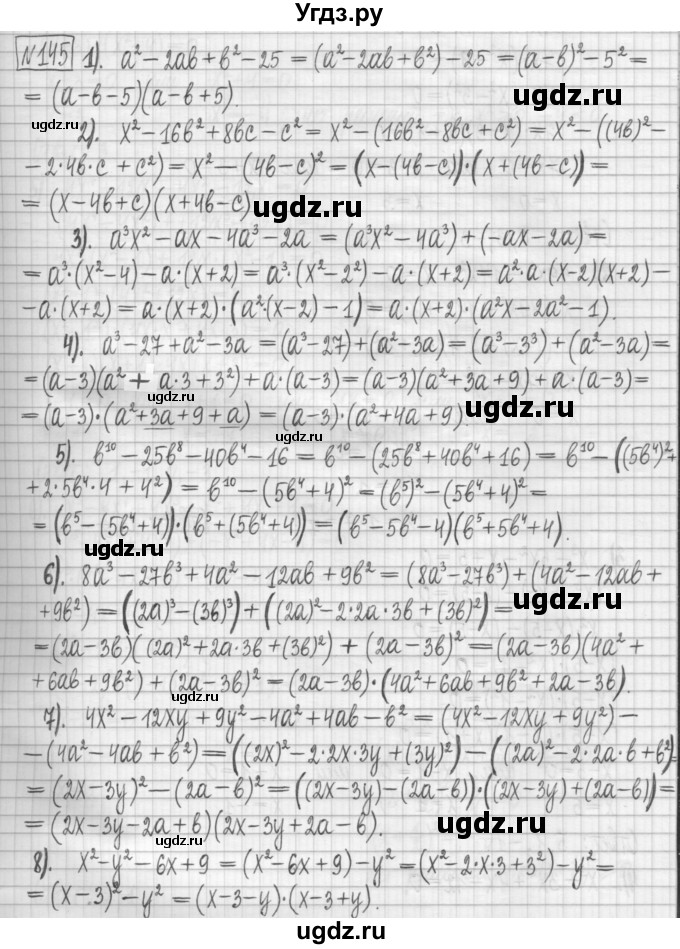 Угдз.ру
№145 1). a² − 2ab + b² − 25 = (a² − 2ab + b²) − 25 = (a − b)² − 5² =
= (a − b − 5)(a − b + 5).
ugdz.ru ugdz.ru
2). x² − 16b² + 8bc − c² = x² − (16b² − 8bc + c²) = x² − ((4b)² −
− 2·4b·c + c²) = x² − (4b − c)² = (x − (4b − c))·(x + (4b − c)) =
= (x − 4b + c)(x + 4b − c) ugdz.ru
3). a³x² − ax − 4a³ − 2a = (a³x² − 4a³) + (−ax − 2a) =
= a³·(x² − 4) − a·(x + 2) = a³·(x² − 2²) − a·(x + 2) = a²·a·(x − 2)(x + 2) −
− a·(x + 2) = a·(x + 2)·(a²·(x − 2) − 1) = a·(x + 2)·(a²x − 2a² − 1).
4). a³ − 27 + a² − 3a = (a³ − 27) + (a² − 3a) = (a³ − 3³) + (a² − 3a) =
= (a − 3)(a² + a·3 + 3²) + a·(a − 3) = (a − 3)(a² + 3a + 9) + a·(a − 3) =
ugdz.ru
= (a − 3)·(a² + 3a + 9 + a) = (a − 3)·(a² + 4a + 9) ugdz.ru
5). b¹⁰ − 25b⁸ − 40b⁴ − 16 = b¹⁰ − (25b⁸ + 40b⁴ + 16) = b¹⁰ − ((5b⁴)² +
+ 2·5b⁴·4 + 4²) = b¹⁰ − (5b⁴ + 4)² = (b⁵)² − (5b⁴ + 4)² =
= (b⁵ − (5b⁴ + 4))·(b⁵ + (5b⁴ + 4)) = (b⁵ − 5b⁴ − 4)(b⁵ + 5b⁴ + 4).
ugdz.ru
6). 8a³ − 27b³ + 4a² − 12ab + 9b² = (8a³ − 27b³) + (4a² − 12ab +
+ 9b²) = ((2a)³ − (3b)³) + ((2a)² − 2·2a·3b + (3b)²) = ugdz.ru
= (2a − 3b)((2a)² + 2a·3b + (3b)²) + (2a − 3b)² = (2a − 3b)(4a² +
ugdz.ru
+ 6ab + 9b²) + (2a − 3b)² = (2a − 3b)·(4a² + 6ab + 9b² + 2a − 3b).
7). 4x² − 12xy + 9y² − 4a² + 4ab − b² = (4x² − 12xy + 9y²) −
− (4a² − 4ab + b²) = ((2x)² − 2·2x·3y + (3y)²) − ((2a)² − 2·2a·b + b²)
= (2x − 3y)² − (2a − b)² = ((2x − 3y) − (2a − b))·((2x − 3y) + (2a − b)) =
= (2x − 3y − 2a + b)(2x − 3y + 2a − b). ugdz.ru
ugdz.ru
8). x² − y² − 6x + 9 = (x² − 6x + 9) − y² = (x² − 2·x·3 + 3²) − y² =
= (x − 3)² − y² = (x − 3 − y)·(x − 3 + y).
ugdz.ru